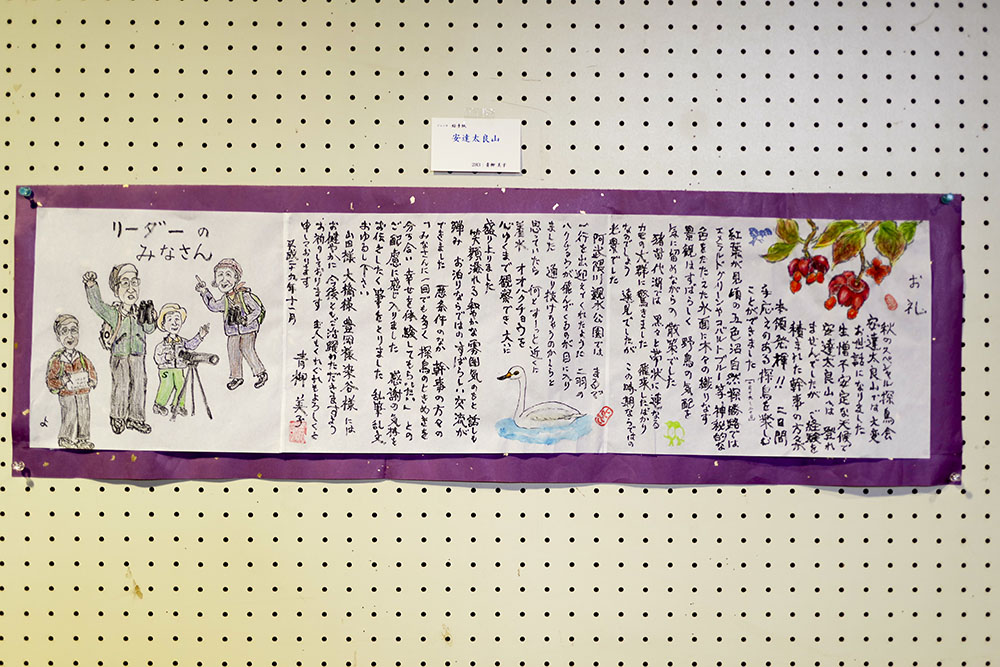 絵手紙
安達太良山
お礼
秋のスペシャル探鳥会
安達太良山では大変
お世話になりました
生憎不安定な天候で
安達太良山へは登れ
ませんでしたが ご経験を
積まれた幹事の方策
本領発揮!! 二日間
手応えのある探鳥を楽しむ
ことができました
紅葉が見頃の五色沼自然探勝路では
エメラルドグリーンやコバルトブルー等神秘的な
色をたたえた水面に木々の織りなす
景観はすばらしく 野鳥の気配を
気に留めながらの散策でした
猪苗代湖では 黒々と帯状に連なる
カモの大群に驚きました 飛来したばかり
なのでしょう 遠見でしたが この時期ならではの
光景でした
阿武隈川親水公園では まるで
ご一行を出迎えてくれたように 二羽の
ハクチョウが飛んでくるのが目に入り
ました 通り抜けちゃうのかしらと
思っていたら 何とすーっと近くに
着水 オオハクチョウを
心ゆくまで観察でき大いに
盛り上りました
笑顔溢れる和やかな雰囲気のもと話しも
弾み お泊りならではのすばらしい交流が
できました 悪条件のなか 幹事の方々の
「みなさんに一回でも多く 探鳥のときめきを
分ち合い 幸せを体験してもらいたい」との
ご配慮に感じ入りました 感謝の気持を
お伝えしたく筆をとりました 乱筆乱文
おゆるし下さい
山田様 大橋様 豊岡様 染谷様 には
お健やかに 今後ともご活躍いただけますよう
お祈りしております まことくれぐれもよろしくと
申しております
平成二十九年十一月
青柳 美子
リーダーの
みなさん